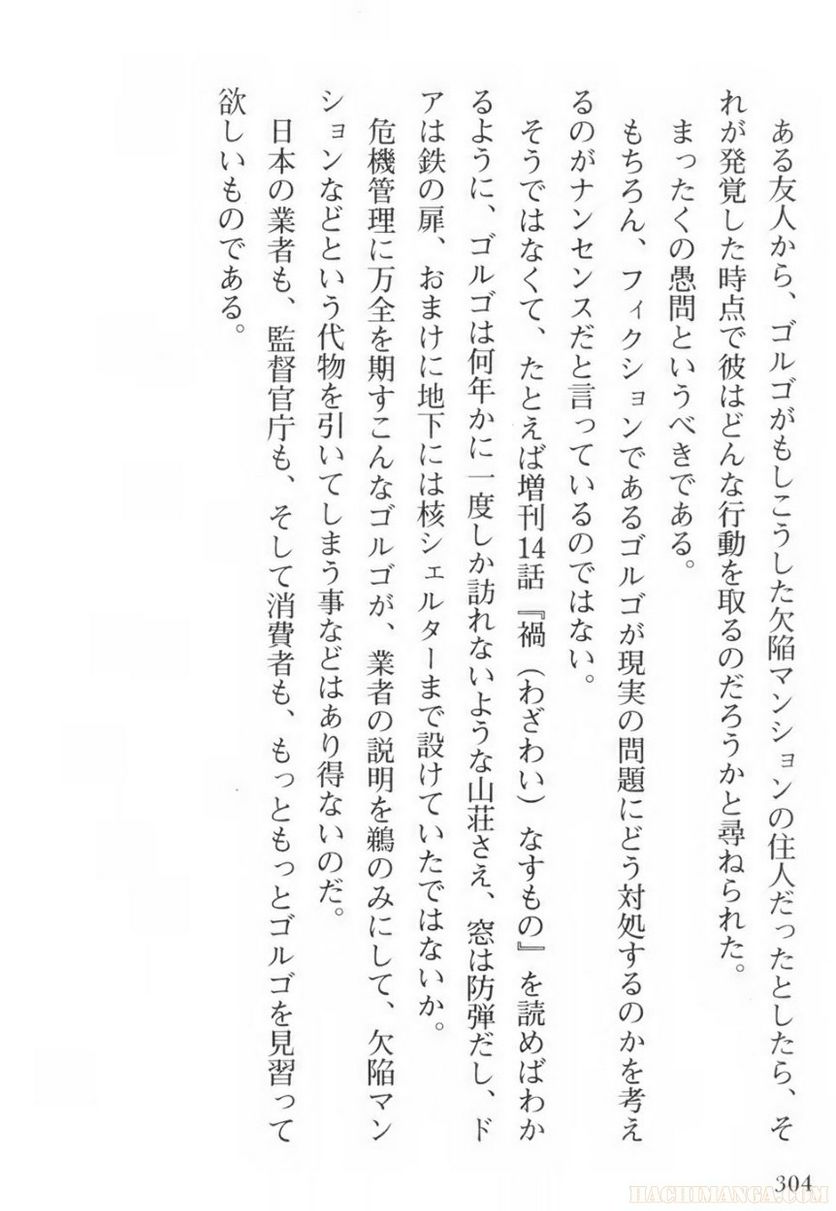 ある友人から、ゴルゴがもしこうした欠陥マンションの住人だったとしたら、そ
れが発覚した時点で彼はどんな行動を取るのだろうかと尋ねられた。
まったくの愚問というべきである。
もちろん、フィクションであるゴルゴが現実の問題にどう対処するのかを考え
るのがナンセンスだと言っているのではない。
そうではなくて、たとえば増刊14話『禍（わざわい）なすもの』を読めばわか
るように、ゴルゴは何年かに一度しか訪れないような山荘さえ、窓は防弾だし、ド
アは鉄の扉、おまけに地下には核シェルターまで設けていたではないか。
危機管理に万全を期すこんなゴルゴが、業者の説明を鵜のみにして、欠陥マン
ションなどという代物を引いてしまう事などはあり得ないのだ。
日本の業者も、監督官庁も、そして消費者も、もっともっとゴルゴを見習って
欲しいものである。
304
HACHIMANGA.COM